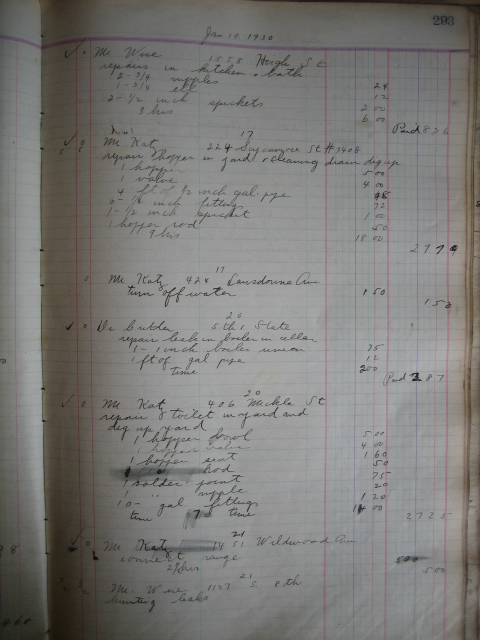 293
Jan 10, 1930
Mr Wise 1558 Haigh St
repairs in kitchen & bath
2 - 3/4 nipples 24
1 - 3/4 ell 12
2 - 1/2 inch spickets 2 00
3 hrs 6 00
Paid 8 26
17
Mr Katz 224 Sycamore St #3408
repair hopper in yard & cleaning drain dig up
1 hopper 5 00
1 valve 4 00
4 ft of 1/2 inch gal. pipe
6 - 1/2 inch fittings 72
1 - 1/2 inch spicket 1 00
1 hopper rod 50
9 hrs 18 00
27 79
17
Mr Katz 424 Lansdowne Ave
turn off water 1 50
1 50
20
5th & State
repair leak in boiler in cellar
1 - 1 inch boiler union 75
1 ft of gal pipe 12
time 2 00
Paid 2 87
20
Mr Katz 406 Mickle St
repair toilet in yard and
dig up yard
1 hopper bowl 5 00
1 hopper valve 4 00
1 hopper seat 1 60
1 " rod 50
1 solder joint 75
1 " nipple 20
10 - gal fittings 1 20
time 7 time 14 00
27 25
21
Mr Katz 1451 Wildwood Ave
connect range 5 00
2 1/2 hrs 5 00
21
Mr Wise 1127 S 8th
hunting leaks